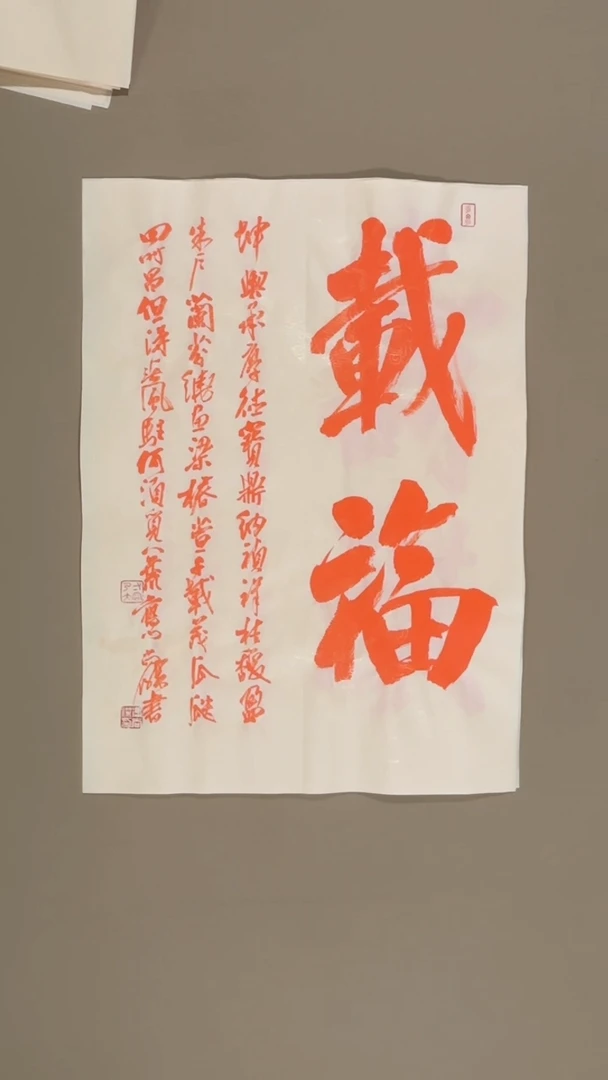 載福
坤輿承厚德寶鼎納禎祥桂馥盈
朱戶蘭芬繞畫梁椒管千載茂瓜瓞
四時昌但得清風駐何須覓八荒 書